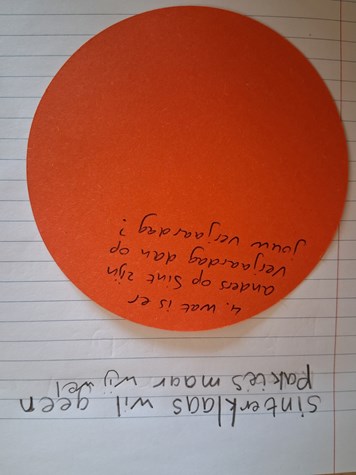 sinterklaas wil geen
pakies maar wij wel
4. wat is er
anders op Sint zijn
verjaardag dan op
jouw verjaardag?